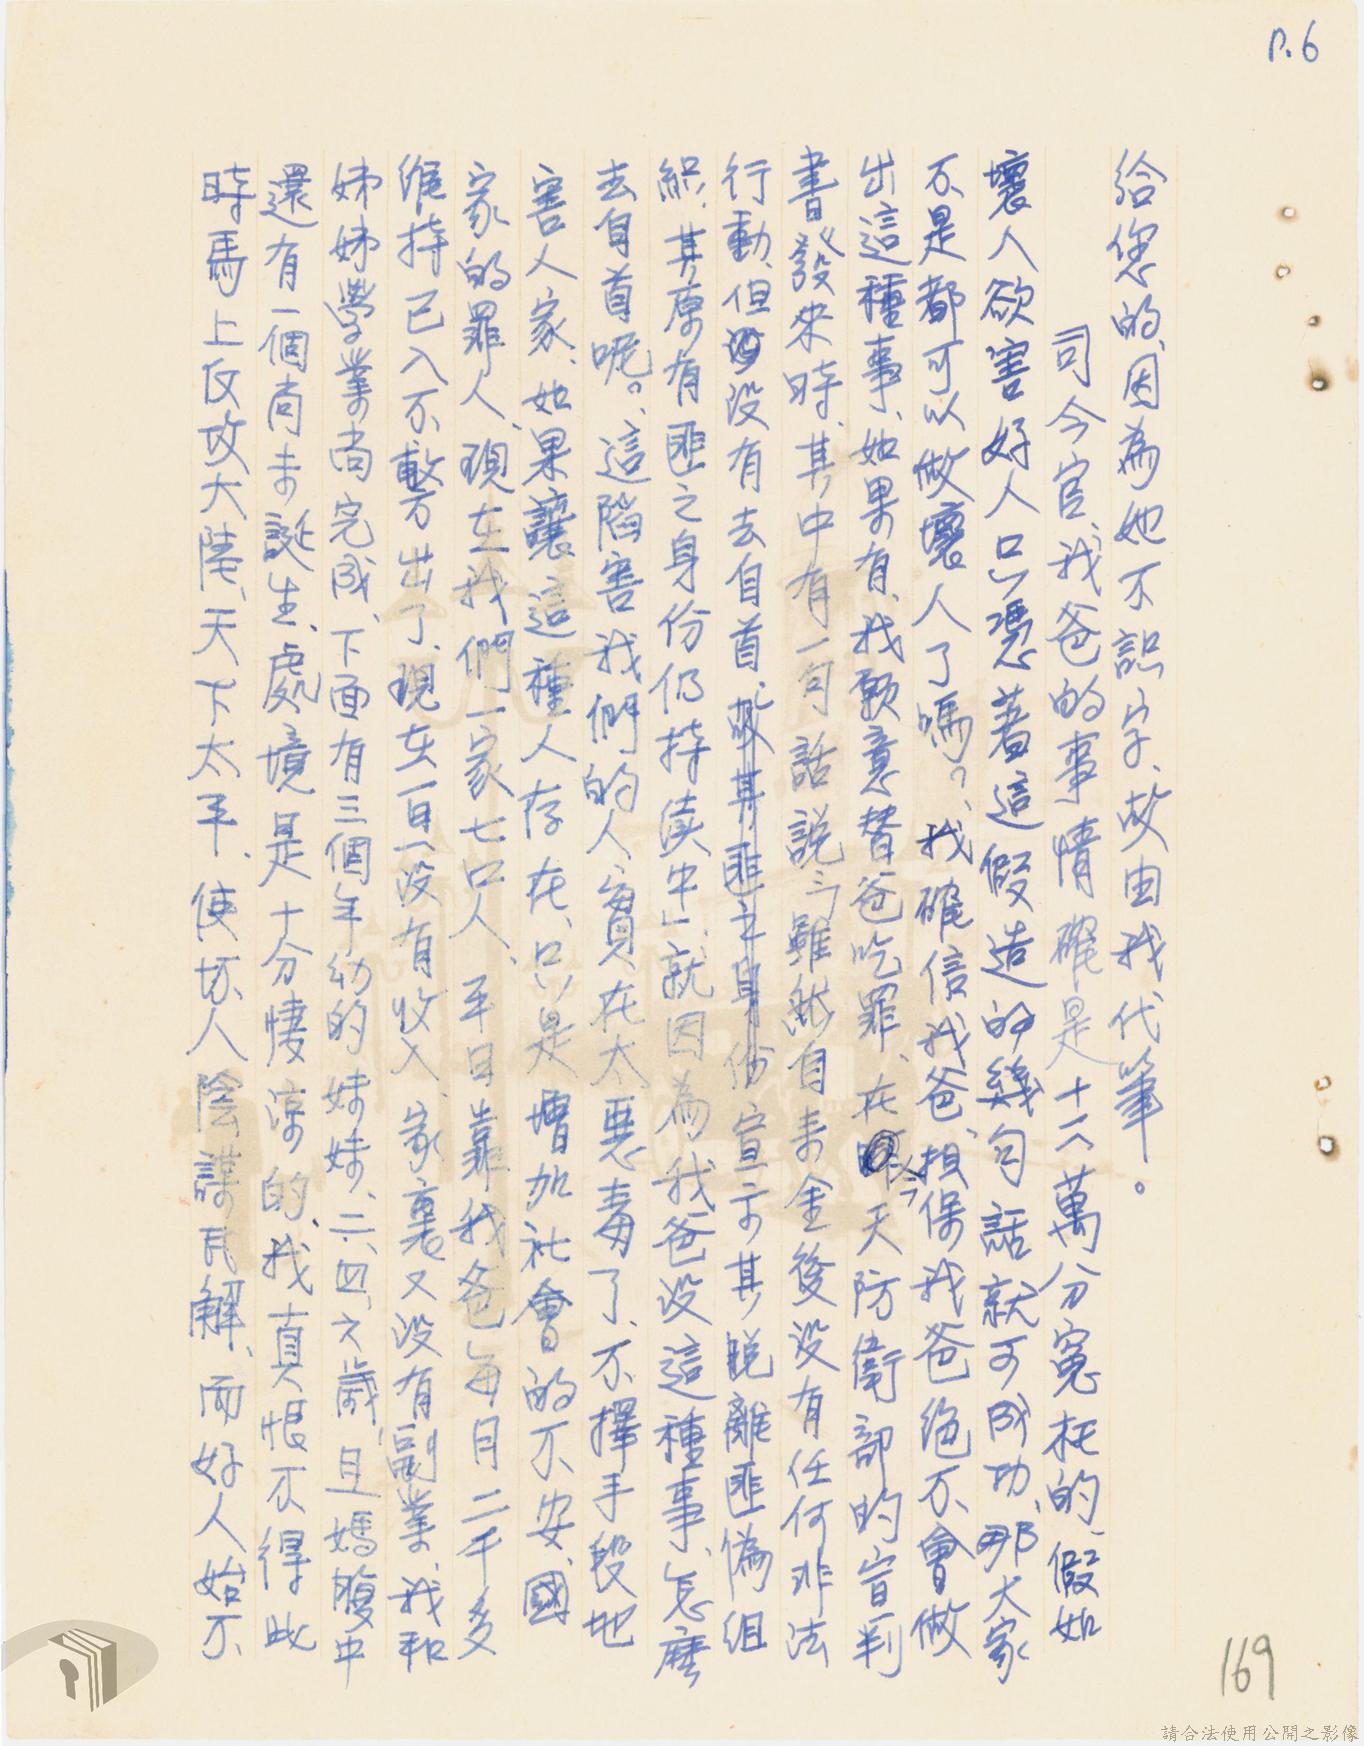 P.6
給您的、因為她不認字、故由我代筆。
司令官、我爸的事情確是十二萬分冤枉的、假如
壞人欲害好人只憑著這假造的幾句話就可成功、那大家
不是都可以做壞人了嗎？、我確信我爸、担保我爸絕不會做
出這種事、如果有、我願意替爸吃罪、在今天防衛部的宣判
書發來時、其中有一句話說「雖然自來金後沒有任何非法
行動、但沒有去自首、故其匪之身份宣示其脫離匪偽組
織、其原有匪之身份仍持續中」就因為我爸沒這種事、怎麼
去自首呢。、這陷害我們的人、實在太惡毒了、不擇手段地
害人家、如果讓這種人存在、只是增加社會的不安、國
家的罪人、現在我們一家七口人、平日靠我爸每月二千多
維持已入不敷出了、現在一旦沒有收入、家裏又沒有副業、我和
姊姊學業尚完成、下面有三個年幼的妹妹、二、四、六歲、且媽腹中
還有一個尚未誕生、處境是十分悽涼的、我真恨不得此
時馬上反攻大陸、天下太平、使坏人陰謀瓦解、而好人始不
169
請合法使用公開之影像